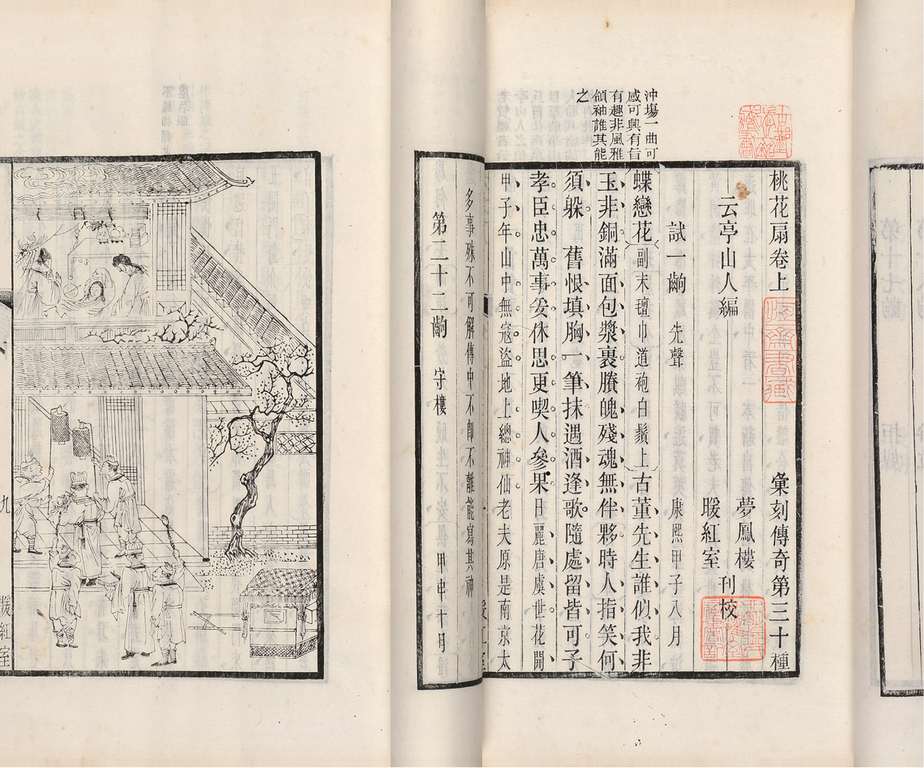 沖塲一曲可
感可興有旨
有趣非風雅
領袖誰其能
之
桃花扇卷上 彙刻傳奇第三十種
云亭山人編 夢鳳樓
暖紅室 刊校
試一齣 先聲 康熙甲子八月
蝶戀花 副末氊巾道袍白鬚上 古董先生誰似我非
玉非銅滿面包漿裹賸魄殘魂無伴夥時人指笑何
須躲 舊恨填胸一筆抹遇酒逢歌隨處留皆可子
孝臣忠萬事妥休思更喫人參果日麗唐虞世花開
甲子年山中無寇盜地上總神仙老夫原是南京太
多事殊不可解傳中不卽不離能寫其神
第二十二齣 守樓 甲申十月
九
暖紅室